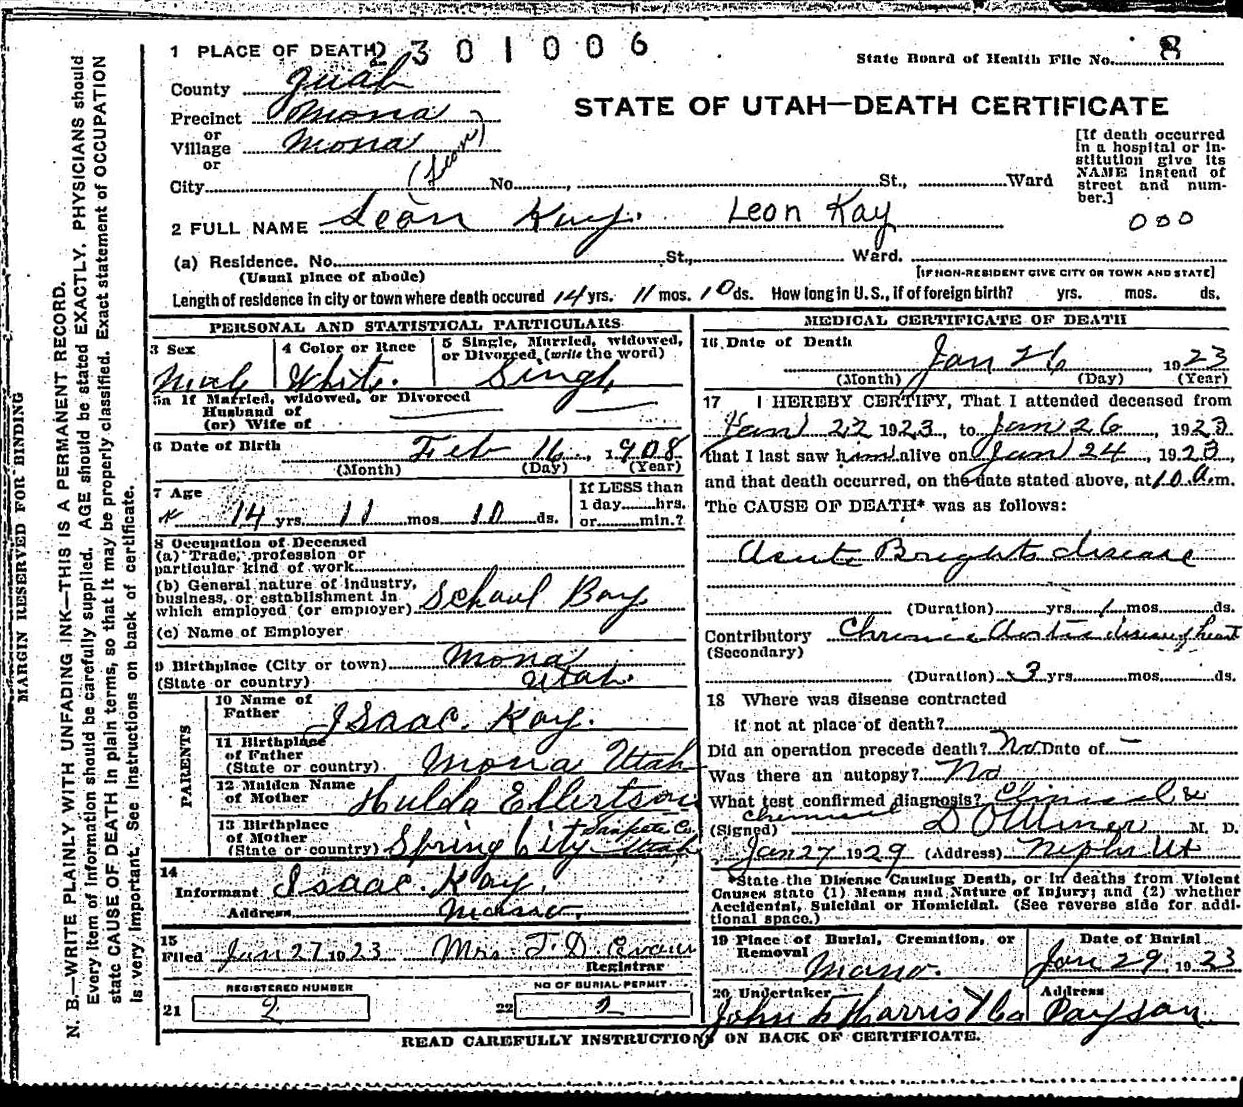 MARGIN RESERVED FOR BINDING
N. B.—WRITE PLAINLY WITH UNFADING INK—THIS IS A PERMANENT RECORD.
Every item of information should be carefully supplied. AGE should be stated EXACTLY. PHYSICIANS should
state CAUSE OF DEATH in plain terms, so that it may be properly classified. Exact statement of OCCUPATION
is very important. See instructions on back of certificate.
1 PLACE OF DEATH 2301006
State Board of Health File No. 8
County Juab
STATE OF UTAH—DEATH CERTIFICATE
Precinct Mona
or
Village Mona
or
City No. , St., Ward
[If death occurred
in a hospital or in-
stitution give its
NAME instead of
street and num-
ber.]
000
2 FULL NAME Leon Kay. Leon Kay
(a) Residence. No. St., Ward.
(Usual place of abode)
[IF NON-RESIDENT GIVE CITY OR TOWN AND STATE]
Length of residence in city or town where death occured 14 yrs. 11 mos. 10 ds. How long in U. S., if of foreign birth? yrs. mos. ds.
PERSONAL AND STATISTICAL PARTICULARS
3 Sex Male
4 Color or Race White.
5 Single, Married, widowed,
or Divorced, (write the word)
Single
5a If Married, widowed, or Divorced
Husband of
(or) Wife of
6 Date of Birth Feb 16, 1908
(Month) (Day) (Year)
7 Age
14 yrs 11 mos 10 ds.
If LESS than
1 day hrs.
or min.?
8 Occupation of Deceased
(a) Trade, profession or
particular kind of work
(b) General nature of industry,
business, or establishment in
which employed (or employer) School Boy
(c) Name of Employer
9 Birthplace (City or town) Mona
(State or country) Utah
PARENTS
10 Name of
Father Isaac. Kay.
11 Birthplace
of Father
(State or country) Mona Utah
12 Maiden Name
of Mother Hulda Ellertson
13 Birthplace
of Mother
(State or country) Spring City Sanpete Co. Utah
14
Informant Isaac Kay.
Address Mona.
15
Filed Jan 27 1923 Mrs. J. D. Evans
Registrar
REGISTERED NUMBER
21 2
NO OF BURIAL PERMIT
22 2
MEDICAL CERTIFICATE OF DEATH
16 Date of Death Jan 26, 1923
(Month) (Day) (Year)
17 I HEREBY CERTIFY, That I attended deceased from
Jan 22 1923, to Jan 26, 1923
that I last saw him alive on Jan 24, 1923,
and that death occurred, on the date stated above, at 10 a.m.
The CAUSE OF DEATH* was as follows:
Acute Brights disease
(Duration) yrs. 1 mos. ds.
Contributory Chronic Aortic disease of heart
(Secondary)
(Duration) 3 yrs. mos. ds.
18 Where was disease contracted
if not at place of death?
Did an operation precede death? No Date of —
Was there an autopsy? No
What test confirmed diagnosis? Clinical &
Chemical
(Signed) M. D.
Jan 27 1929 (Address) Nephi Ut
*State the Disease Causing Death, or in deaths from Violent
Causes state (1) Means and Nature of Injury; and (2) whether
Accidental, Suicidal or Homicidal. (See reverse side for addi-
tional space.)
19 Place of Burial, Cremation, or
Removal Mona.
Date of Burial
Jan 29, 1923
20 Undertaker
John F Harris & Co
Address
Payson.
READ CAREFULLY INSTRUCTIONS ON BACK OF CERTIFICATE.